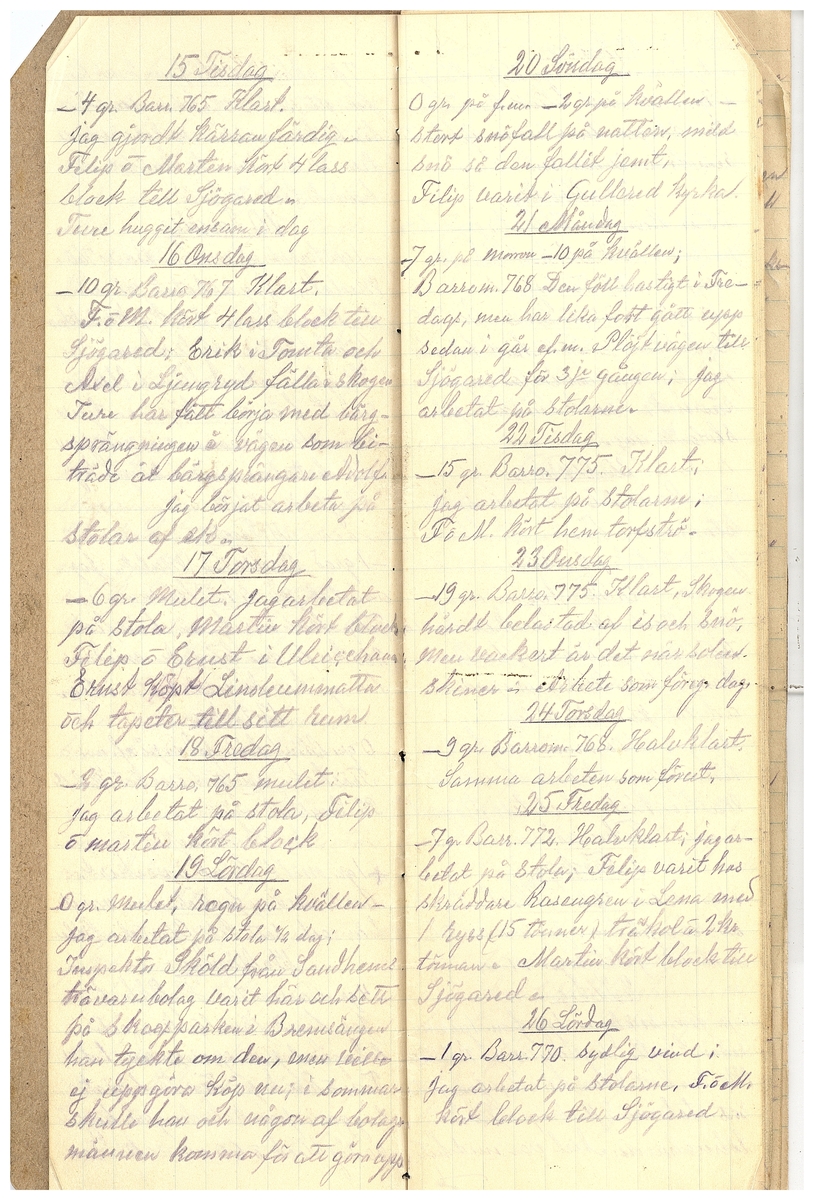 15 Tisdag
-4 gr. Barr. 765 Klart.
Jag gjordt kärran färdig.
Filip o Martin kört 4 lass
block till Sjögared.
Ture huggit ensam i dag
16 Onsdag
-10 gr. Barro. 767 Klart.
F. o M. kört 4 lass block till
Sjögared; Erik i Tomta och
Axel i Ljungryd fälla i skogen
Ture har fått börja med bärg-
sprängningen å vägen som bi-
träde åt bärgsprängare Adolfs
jag börjat arbeta på
stolar af ek.
17 Torsdag
-6 gr. Mulet. Jag arbetat
på stola, Martin kört block
Filip o Ernst i Ulricehamn
Ernst köpt Linoleummatta
och tapeter till sitt rum.
18 Fredag
-2 gr. Barro. 765 mulet;
jag arbetat på stola, Filip
o martin kört block
19 Lördag
0 gr. Mulet, regn på kvällen -
Jag arbetat på stola 1/2 dag;
Inspektor Sköld från Sandhems
trävarubolag varit här och sett
på skogsparken i Bremsängen
han tyckte om den, men ville
ej uppgöra köp nu; i sommar
skulle han och någon af bolags
männen komma för att göra upp
20 Söndag
0 gr. på f.m. -2 gr. på kvällen -
stort snöfall på natten, mild
snö så den fallit jemt.
Filip varit i Gullered kyrka.
21 Måndag
-7 gr. på morron -10 på kvällen;
Barrom. 768 Den föll hastigt i Fre-
dags, men har lika fort gått upp
sedan i går ef.m. Plöjt vägen till
Sjögared för 3je gången; jag
arbetat på stolarne.
22 Tisdag
-15 gr. Barro. 775. Klart;
jag arbetat på stolarne;
F o M. kört hem torfströ.
23 Onsdag
-19 gr. Barro. 775. Klart, Skogen
hårdt belastad af is och snö,
men vackert är det när solen
skiner. arbete som föreg. dag.
24 Torsdag
-9 gr. Barrom. 768. Halvklart.
Samma arbeten som förut.
25 Fredag
-7 gr. Barr. 772. Halvklart; jag ar-
betat på stola; Filip varit hos
skräddare Rosengren i Lena med
1 ryss (15 tunnor) träkol à 2 kr.
tönnan. Martin kört block till
Sjögared.
26 Lördag
-1 gr. Barr. 770. sydlig vind;
jag arbetat på stolarne, F. o M.
kört block till Sjögared.